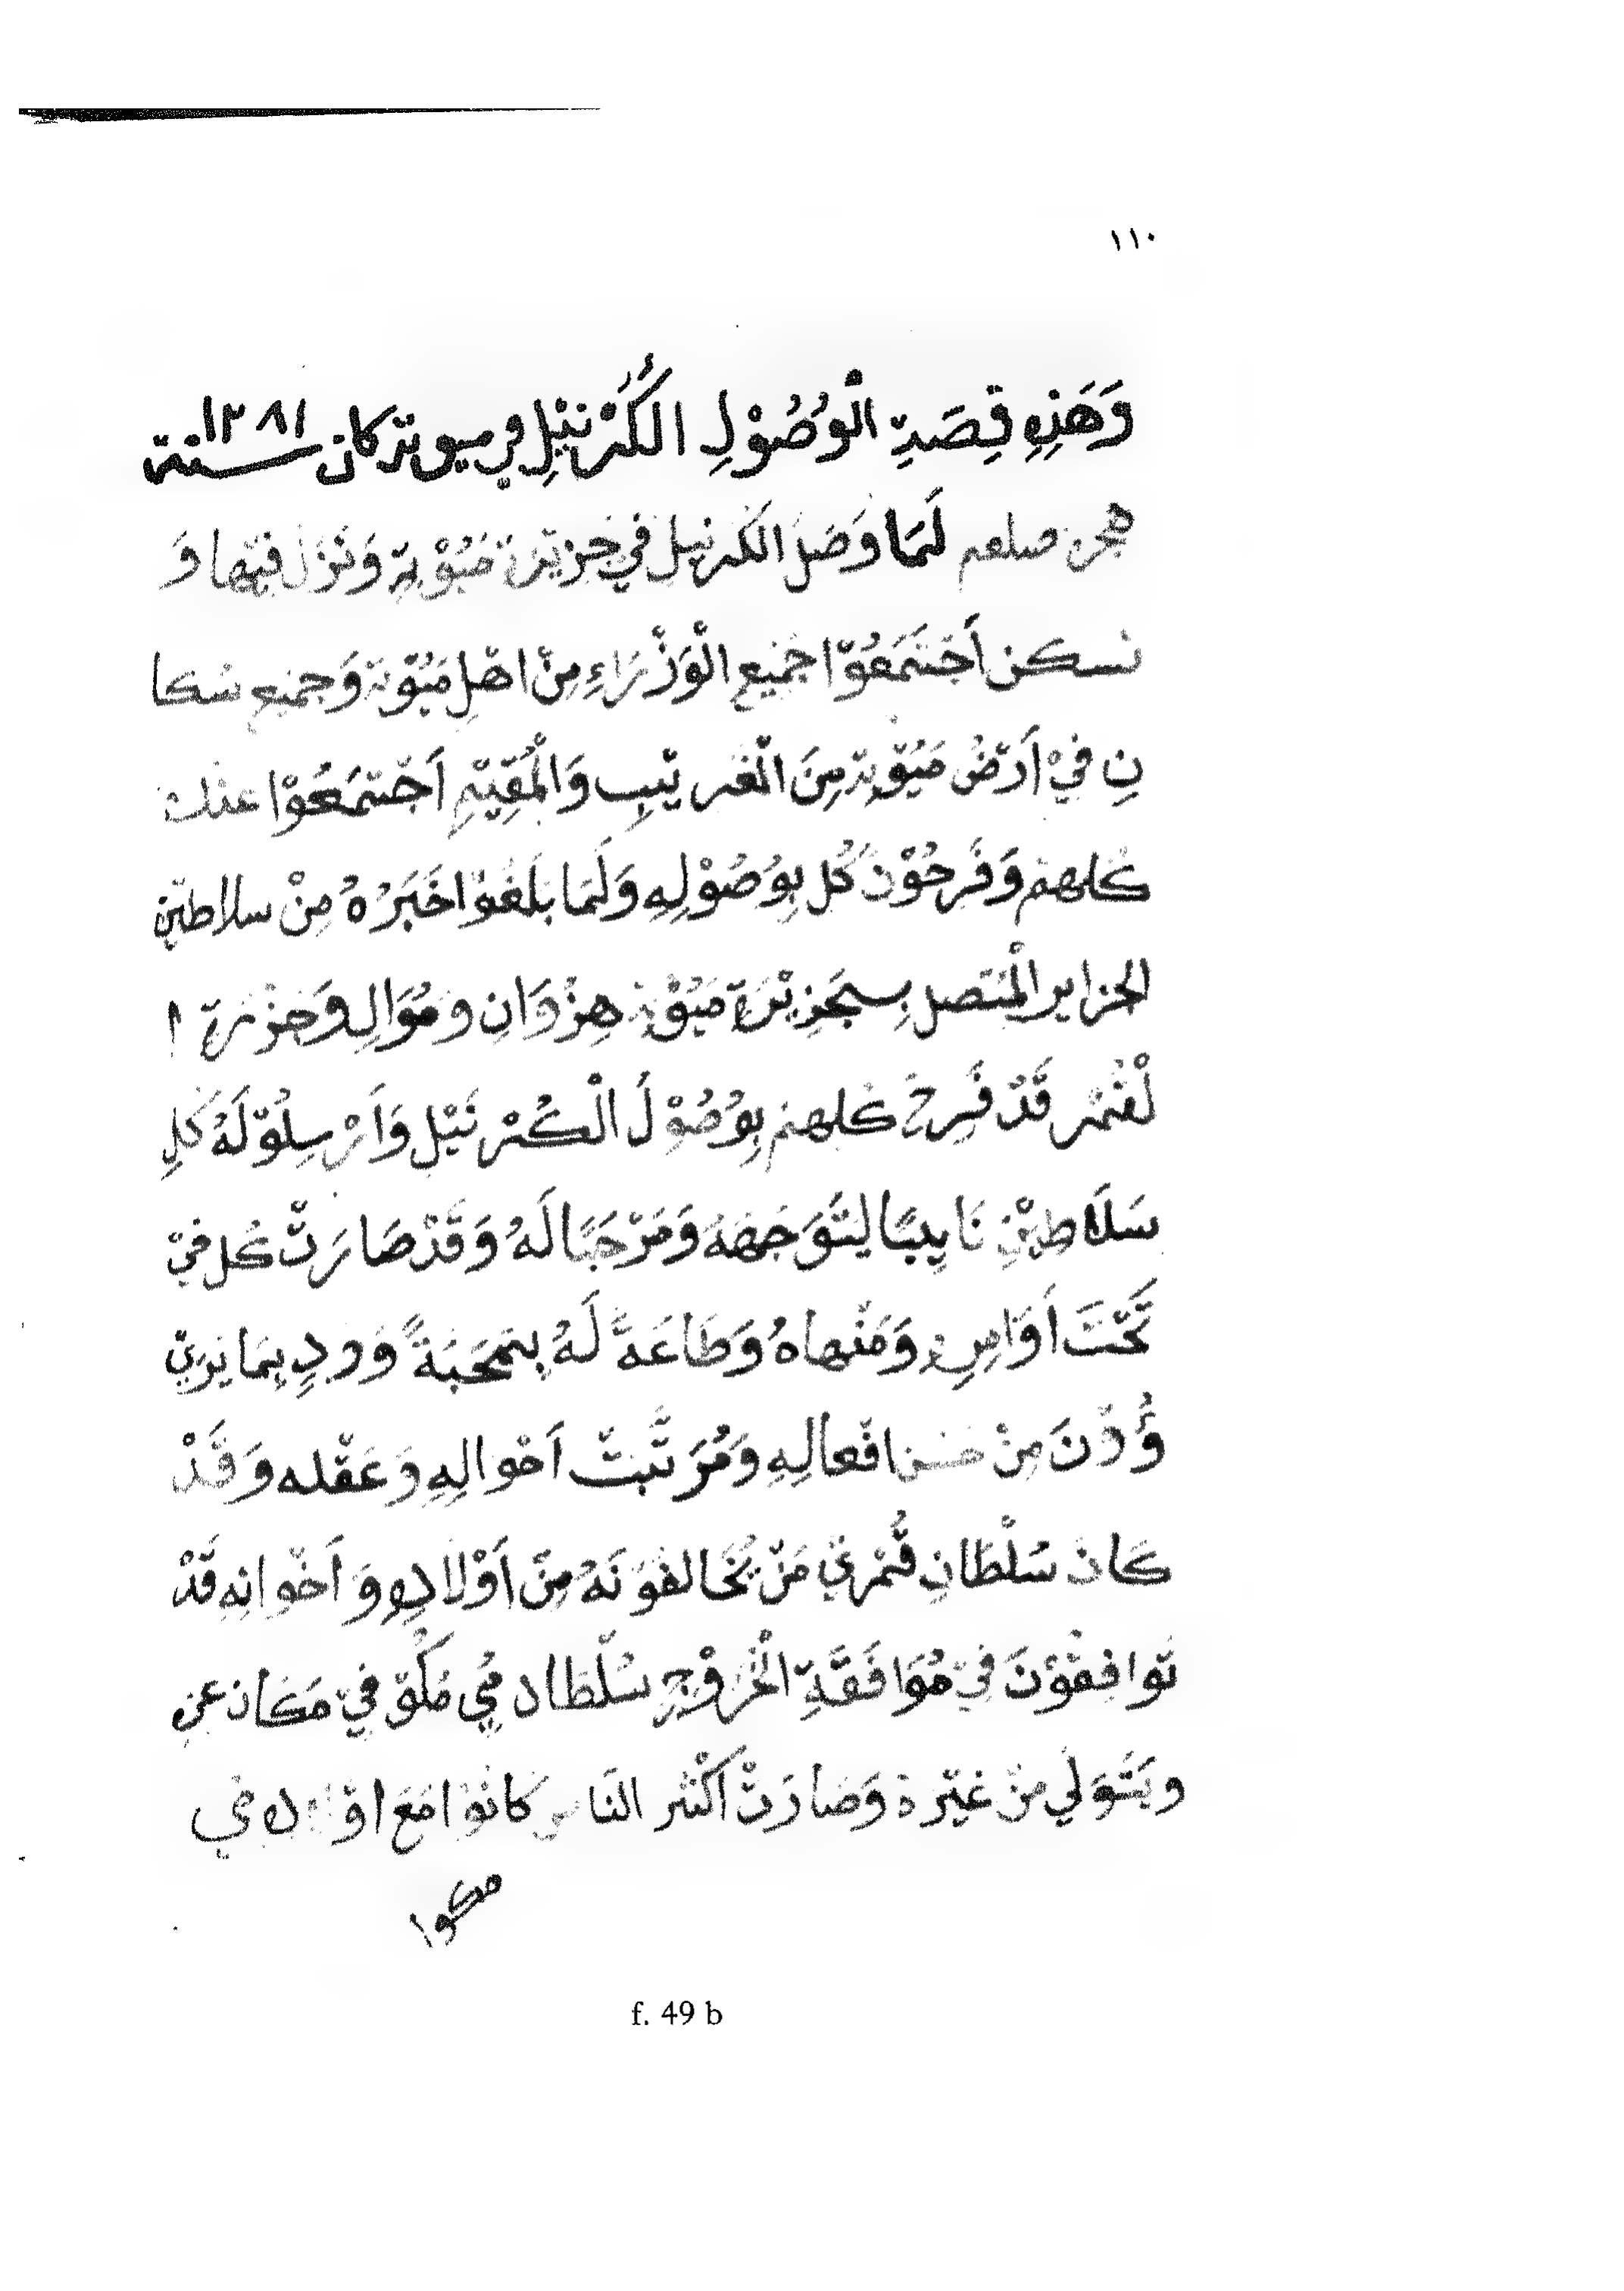 ١١٠
وَهَذِهِ قِصَةِ الْوُصُوْلِ الكُرْنَيْلِ فرميسوترکان سنة ١٢٨١
هجرة صلعم لَمَا وَصَلَ الكُرنيل في جزيرة مَيُوْتِة وَنَزَلَ فيْها وَ
سكن أَجْتَمَعُوْا جَميع الْوَزْرَاءِ مِنْ اهْلِ مَيُوْتة وَجميع سكا
نِ فيْ أَرْضُ مَيُوْتِة مِنَ الْغَريْبِ وَالْمُقِيْمِ أَجْتَمَعُوْا عندك
كلهمْ وَفَرحُوْنَ كُل بِوُصُوْلِهِ وَلَمَا بَلَغُوْا خَبَرُهُ مِنْ سلاطين
الجزاير الْمتصل بِسجَزِيْرَة مَيُوْتة هِزْوَانِ وَمُوَالِ وَجَزْيرة ا
لْقُمْر قَدْ فَرِحَ كلهمْ بِوُصُوْلَ الْكُرْنَيْل وَأَرْسِلُوْ لَهُ كُلِ
سَلَاطيْنِ نَايِبًا لِتَوَجَهَهُ وَمَرْحَبًا لَهُ وَقَدْ صَارَتْ كُل فيْ
تَحْتَ أَوَامِرِهِ وَمَنْهاهُ وَطَاعَةً لَهُ بِمَحَبَةً وَودٍ بِمَا يَرِيْ
ؤُدْنَ مِنْ حسن افْعالِهِ وَمُرَتَّبتْ أَحْوالِهِ وَعَقْله وَقَدْ
كَانَ سُلْطَانِ قُمْري مَنْ يُخَالفُوْنَهُ مِنْ أَوْلَادِهِ وَأَخْوانِهِ قَدْ
توافِقُوْنَ فيْ مُوَافَقَةِ الْخُرُوْجِ سُلْطَان مِي مُلْكُوْ فيْ مَكَان عزه
ويَتَوَلي منْ غيْرة وَصَارَتْ أَكْثر النَّاس كَانُوْا مَعَ اوْلاد مي
مكوا
f. 49 b